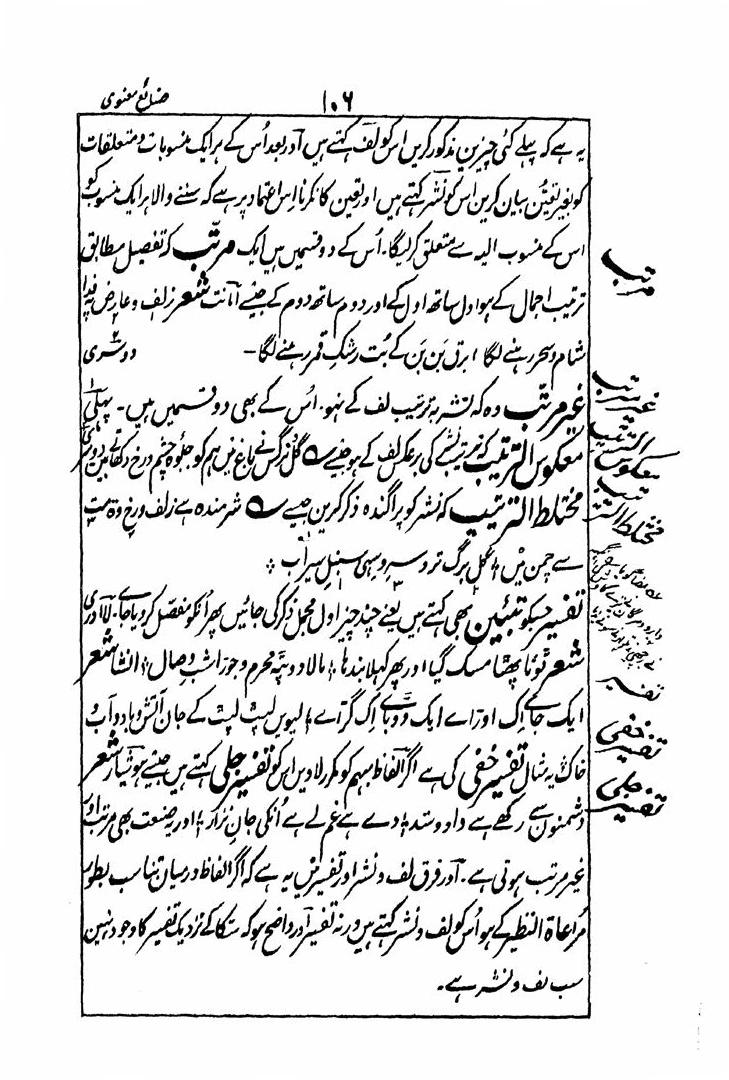 ۱۰۶
صنائع معنوی
یہ ہے کہ پہلے کئی چیزین مذکور کرین اس کو لف کہتے ہیں اور بعد اُس کے ہر ایک منسوبات و متعلقات
کو بغیر تعیّن بیان کرین اس کو نشر کہتے ہیں اور تعین کا نکرنا اِس اعتماد پر ہے کہ سننے والا ہر ایک منسوب کو
اس کے منسوب الیہ سے متعلق کر لیگا۔ اُس کے دو قسمیں ہیں ایک مرتّب کہ تفصیل مطابق
ترتیب اجمال کے ہو اول ساتھ اول کے اور دوم ساتھ دوم کے جیسے امانت شعر زلف و عارض پہ فدا
شام و سحر رہنے لگا ؛ برق بَن بَن کے بُت رشکِ قمر رہنے لگا۔ دوسری
غیر مرتب وہ کہ نشر بہ ترتیب لف کے نہو۔ اُس کے بھی دو قسمیں ہیں۔ پہلی
معکوس الترتیب کہ ترتیب نشر کی برعکس لف کے ہو جیسے گل و نرگس نے باغ میں ہم کو جلوۂ چشم و رخ دکھاتے ہین دوسری
مختلط الترتیب کہ نشر کو پراگندہ ذکر کرین جیسے شرمندہ ہے زلف و رخ و قامت
سے چمن میں ؛ گل برگ تر و سرو سہی سنبل سیراب ؛
تفسیر جسکو تبئین بھی کہتے ہیں یعنے چند چیز اول مجمل ذکر کی جائیں پھر اُنکو مفصل کر دیا جاے۔ لا ادری
شعر ٹوٹا پھٹا مسک گیا اور پھر کہلا بندہا ؛ مالا دوپٹہ محرم و جوڑا شب وصال ؛ انشا شعر
ایک جاے اِک اوڑاے ایک ڈوباے اِک گراے ؛ لیویں لپٹ لپٹ کے جان آتش و باد و آب و
خاک یہ مثال تفسیر خفی کی ہے اگر الفاظ مبہم کو مکرر لاویں اس کو تفسیر جلی کہتے ہیں جیسے ہوشیار شعر
دشمنون سے رکھے ہے داد و ستد ؛ دے ہے غم لے ہے اُنکی جانِ نزار ؛ اور یہ صنعت بھی مرتب اور
غیر مرتب ہوتی ہے۔ اور فرق لف و نشر اور تفسیر میں یہ ہے کہ اگر الفاظ درمیان تناسب بطور
مُراعاة النظیر کے ہو اُس کو لف و نشر کہتے ہیں ورنہ تفسیر اور واضح ہو کہ سکاکے نزدیک تفسیر کا وجود نہین
سب لف و نشر ہے۔
مرتب
غیر مرتب
معکوس الترتیب
مختلط الترتیب
تفسیر
تفسیر خفی
تفسیر جلی